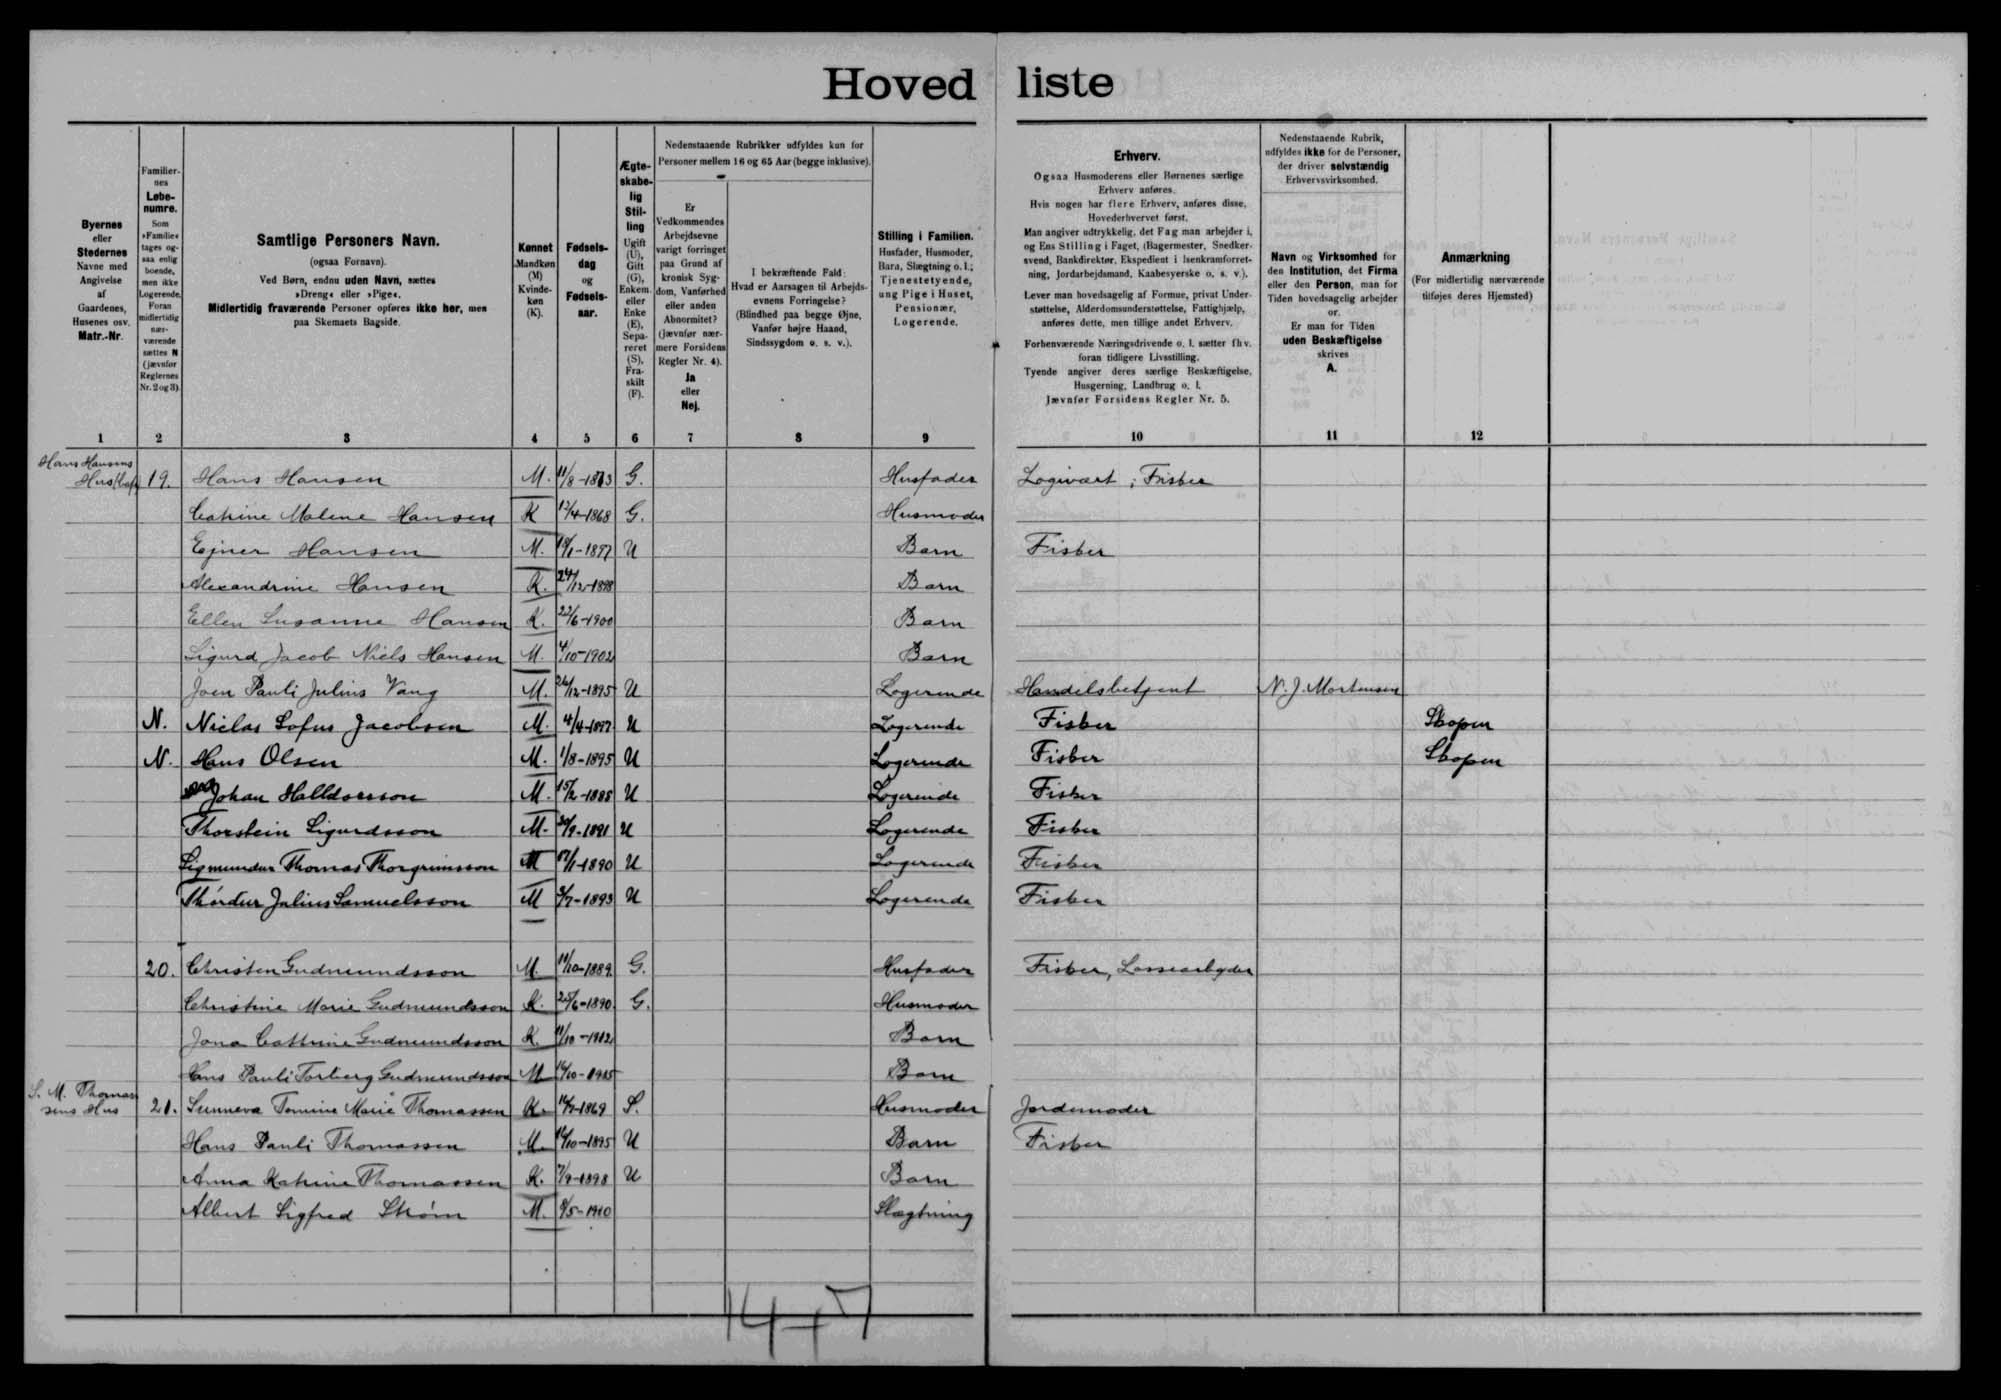 Hoved liste
Byernes eller Stedernes Navne med Angivelse af Gaardenes, Husenes osv. Matr.-Nr.
Familiernes Løbenumre. Som »Familie« tages ogsaa enlig boende, men ikke Logerende. Foran midlertidig nærværende sættes N (jævnfør Reglernes Nr. 2 og 3).
Samtlige Personers Navn.
(ogsaa Fornavn).
Ved Børn, endnu uden Navn, sættes
»Dreng« eller »Pige«.
Midlertidig fraværende Personer opføres ikke her, men
paa Skemaets Bagside.
Kønnet Mandkøn (M) Kvindekøn (K).
Fødselsdag og Fødselsaar.
Ægteskabelig Stilling Ugift (U), Gift (G), Enkem. eller Enke (E), Separeret (S), Fraskilt (F).
Nedenstaaende Rubrikker udfyldes kun for
Personer mellem 16 og 65 Aar (begge inklusive).
Er Vedkommendes Arbejdsevne varigt forringet paa Grund af kronisk Sygdom, Vanførhed eller anden Abnormitet? (Jævnfør nærmere Forsidens Regler Nr. 4). Ja eller Nej.
I bekræftende Fald: Hvad er Aarsagen til Arbejdsevnens Forringelse? (Blindhed paa begge Øjne, Vanfør højre Haand, Sindssygdom o. s. v.).
Stilling i Familien. Husfader, Husmoder, Barn, Slægtning o. l.; Tjenestetyende, ung Pige i Huset, Pensionær, Logerende.
Erhverv.
Ogsaa Husmoderens eller Børnenes særlige
Erhverv anføres.
Hvis nogen har flere Erhverv, anføres disse,
Hovederhvervet først.
Man angiver udtrykkelig, det Fag man arbejder i,
og Ens Stilling i Faget, (Bagermester, Snedker-
svend, Bankdirektør, Ekspedient i Isenkramforret-
ning, Jordarbejdsmand, Kaabesyerske o. s. v.).
Lever man hovedsagelig af Formue, privat Under-
støttelse, Alderdomsunderstøttelse, Fattighjælp,
anføres dette, men tillige andet Erhverv.
Forhenværende Næringsdrivende o. l. sætter fhv.
foran tidligere Livsstilling.
Tyende angiver deres særlige Beskæftigelse,
Husgerning, Landbrug o. l.
Jævnfør Forsidens Regler Nr. 5.
Nedenstaaende Rubrik,
udfyldes ikke for de Personer,
der driver selvstændig
Erhvervsvirksomhed.
Navn og Virksomhed for
den Institution, det Firma
eller den Person, man for
Tiden hovedsagelig arbejder
for.
Er man for Tiden
uden Beskæftigelse
skrives
A.
Anmærkning
(For midlertidig nærværende
tilføjes deres Hjemsted)
1 2 3 4 5 6 7 8 9 10 11 12
Hans Hansens
Hus 19. Hans Hansen M. 11/8-1873 G. Husfader Logivært; Fisker
Catrine Malene Hansen K 12/4-1868 G. Husmoder
Ejner Hansen M. 19/1-1897 U Barn Fisker
Alexandrine Hansen K. 24/12-1898 Barn
Ellen Susanne Hansen K. 22/6-1900 Barn
Sigurd Jacob Niels Hansen M. 4/10-1902 Barn
Joen Pauli Julius Vang M. 26/12-1895 U Logerende Handelsbetjent N. J. Mortensen
N. Niclas Sofus Jacobsen M. 4/4-1897 U Logerende Fisker Skopen
N. Hans Olsen M. 1/8-1895 U Logerende Fisker Skopen
Johan Halldorsson M. 15/2-1888 U Logerende Fisker
Thorstein Sigurdsson M. /9-1891 U Logerende Fisker
Sigmundur Thomas Thorgrimsson M 17/1-1890 U Logerende Fisker
Thórdur Julius Samuelsson M /7-1893 U Logerende Fisker
20. Christen Gudmundsson M. 11/10-1889. G. Husfader Fisker, Lossearbejder
Christine Marie Gudmundsson K. 25/6-1890. G. Husmoder
Jona Cathrine Gudmundsson K. 11/10-1912 Barn
Hans Pauli Torberg Gudmundsson M 16/10-1915 Barn
S. M. Thomas-
sens Hus 21. Sunneva Tomine Marie Thomassen K. 16/7-1869 S. Husmoder Jordemoder
Hans Pauli Thomassen M. 16/10-1895 U Barn Fisker
Anna Katrine Thomassen K. 7/9-1898 U Barn
Albert Sigfred Strøm M. 8/5-1910 Slægtning
14+7